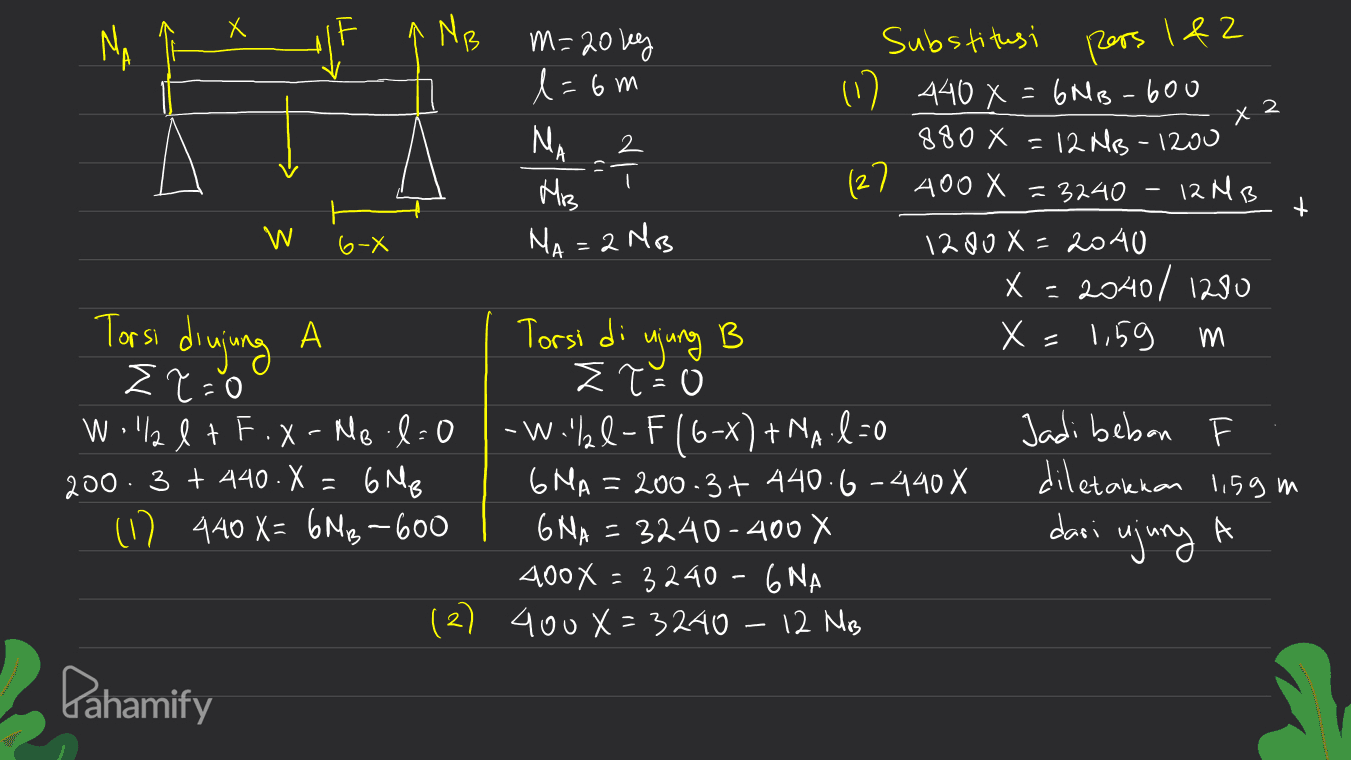 N_A X F N_B
W 6-X
m = 20 kg
l = 6 m
N_A / N_B = 2 / 1
N_A = 2 N_B
Torsi diujung A
Στ = 0
W . 1/2 l + F . X - N_B . l = 0
200 . 3 + 440 . X = 6 N_B
(1) 440 X = 6N_B - 600
Torsi di ujung B
Στ = 0
- W . 1/2 l - F (6-X) + N_A . l = 0
6 N_A = 200 . 3 + 440 . 6 - 440 X
6 N_A = 3240 - 400 X
400X = 3240 - 6 N_A
(2) 400 X = 3240 - 12 N_B
Substitusi pers 1 & 2
(1) 440 X = 6N_B - 600
x 2
880 X = 12 N_B - 1200
(2) 400 X = 3240 - 12 N_B +
1280 X = 2040
X = 2040 / 1280
X = 1,59 m
Jadi beban F
diletakkan 1,59 m
dari ujung A
Pahamify